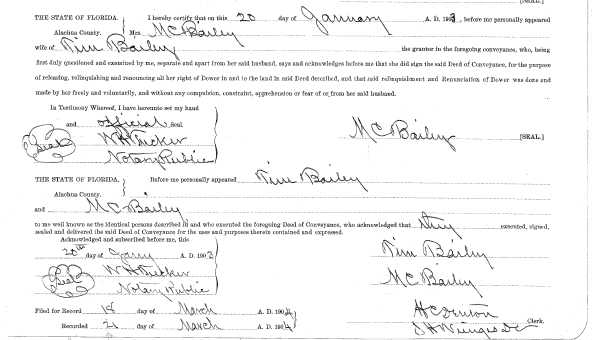 [SEAL]
THE STATE OF FLORIDA. I hereby certify that on this 20 day of January A. D. 1903, before me personally appeared
Alachua County. Mrs. M C Bailey
wife of Tim Bailey the grantor in the foregoing conveyance, who, being
first duly questioned and examined by me, separate and apart from her said husband, says and acknowledges before me that she did sign the said Deed of Conveyance, for the purpose
of releasing, relinquishing and renouncing all her right of Dower in and to the land in said Deed described, and that said relinquishment and Renunciation of Dower was done and
made by her freely and voluntarily, and without any compulsion, constraint, apprehension or fear of or from her said husband.
In Testimony Whereof, I have hereunto set my hand
and official Seal.
Seal W H Tucker M C Bailey [SEAL.]
Notary Public
THE STATE OF FLORIDA. Before me personally appeared Tim Bailey
Alachua County.
and M C Bailey
to me well known as the identical persons described in and who executed the foregoing Deed of Conveyance, who acknowledged that they executed, signed,
sealed and delivered the said Deed of Conveyance for the uses and purposes therein contained and expressed.
Acknowledged and subscribed before me, this
20th day of Jany A. D. 1903 Tim Bailey
Seal W H Tucker M C Bailey
Notary Public
Filed for Record 18 day of March A. D. 1904
Clerk.
Recorded 21 day of March A. D. 1904